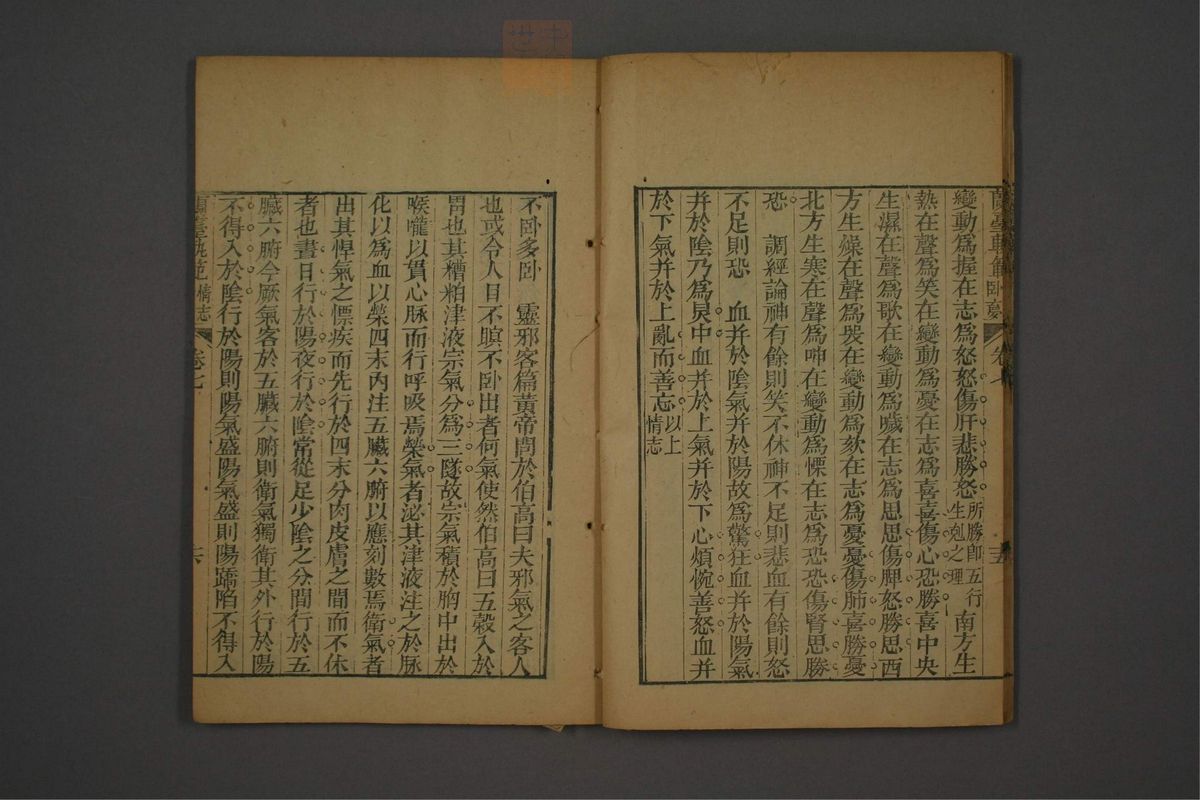 變動爲握在志爲怒怒傷肝悲勝怒所勝即五行生剋之理　南方生
熱在聲爲笑在變動爲憂在志爲喜喜傷心恐勝喜中央
生濕在聲爲歌在變動爲噦在志爲思思傷脾怒勝思西
方生燥在聲爲哭在變動爲欬在志爲憂憂傷肺喜勝憂
北方生寒在聲爲呻在變動爲慄在志爲恐恐傷腎思勝
恐　調經論神有餘則笑不休神不足則悲血有餘則怒
不足則恐　血并於陰氣并於陽故爲驚狂血并於陽氣
并於陰乃爲炅中血并於上氣并於下心煩惋善怒血并
於下氣并於上亂而善忘以上情志
不卧多卧　靈邪客篇黃帝問於伯高曰夫邪氣之客人
也或令人目不瞑不卧出者何氣使然伯高曰五穀入於
胃也其糟粕津液宗氣分爲三隧故宗氣積於胸中出於
喉嚨以貫心脉而行呼吸焉榮氣者泌其津液注之於脉
化以爲血以榮四末內注五臟六腑以應刻數焉衛氣者
出其悍氣之慓疾而先行於四末分肉皮膚之間而不休
者也晝日行於陽夜行於陰常從足少陰之分間行於五
臟六腑今厥氣客於五臟六腑則衛氣獨衛其外行於陽
不得入於陰行於陽則陽氣盛陽氣盛則陽蹻陷不得入
情志　卷七　六